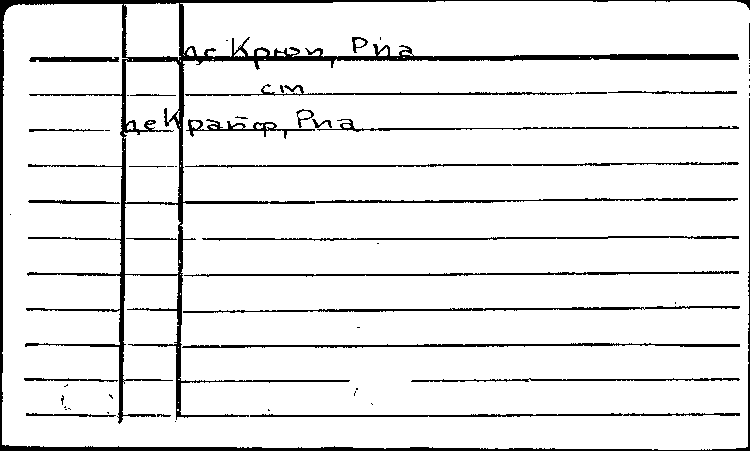 де Крюи, Риа
см
де Крайф, Риа